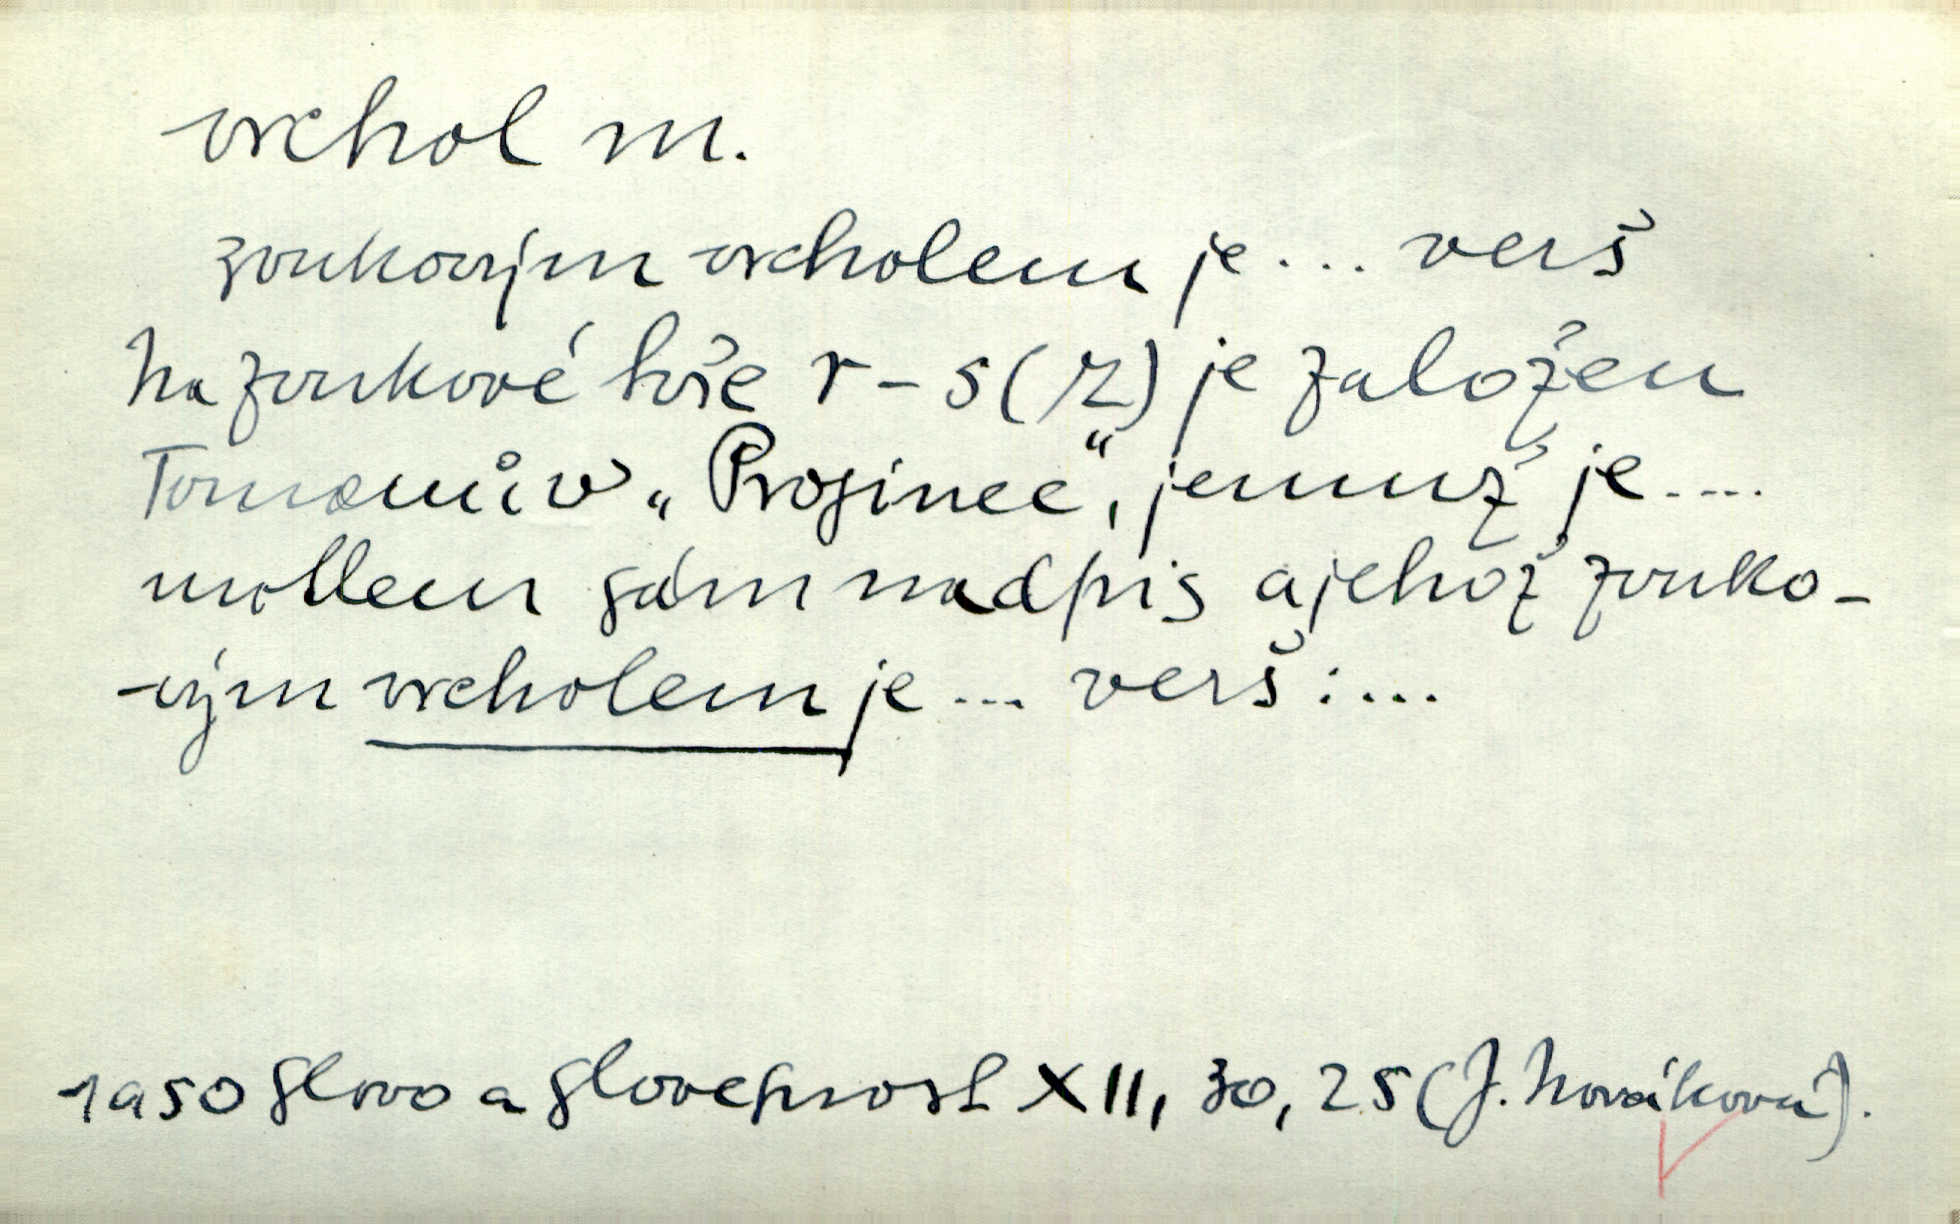 vrchol m.
zvukovým vrcholem je ... verš
Na zvukové hře r – s (rz) je založen
Tomanův „Prosinec“, jemuž je ....
mottem sám nadpis a jehož zvuko-
vým vrcholem je ... verš : ...
1950 Slovo a slovesnost XII, 30, 25 (J. Nováková).